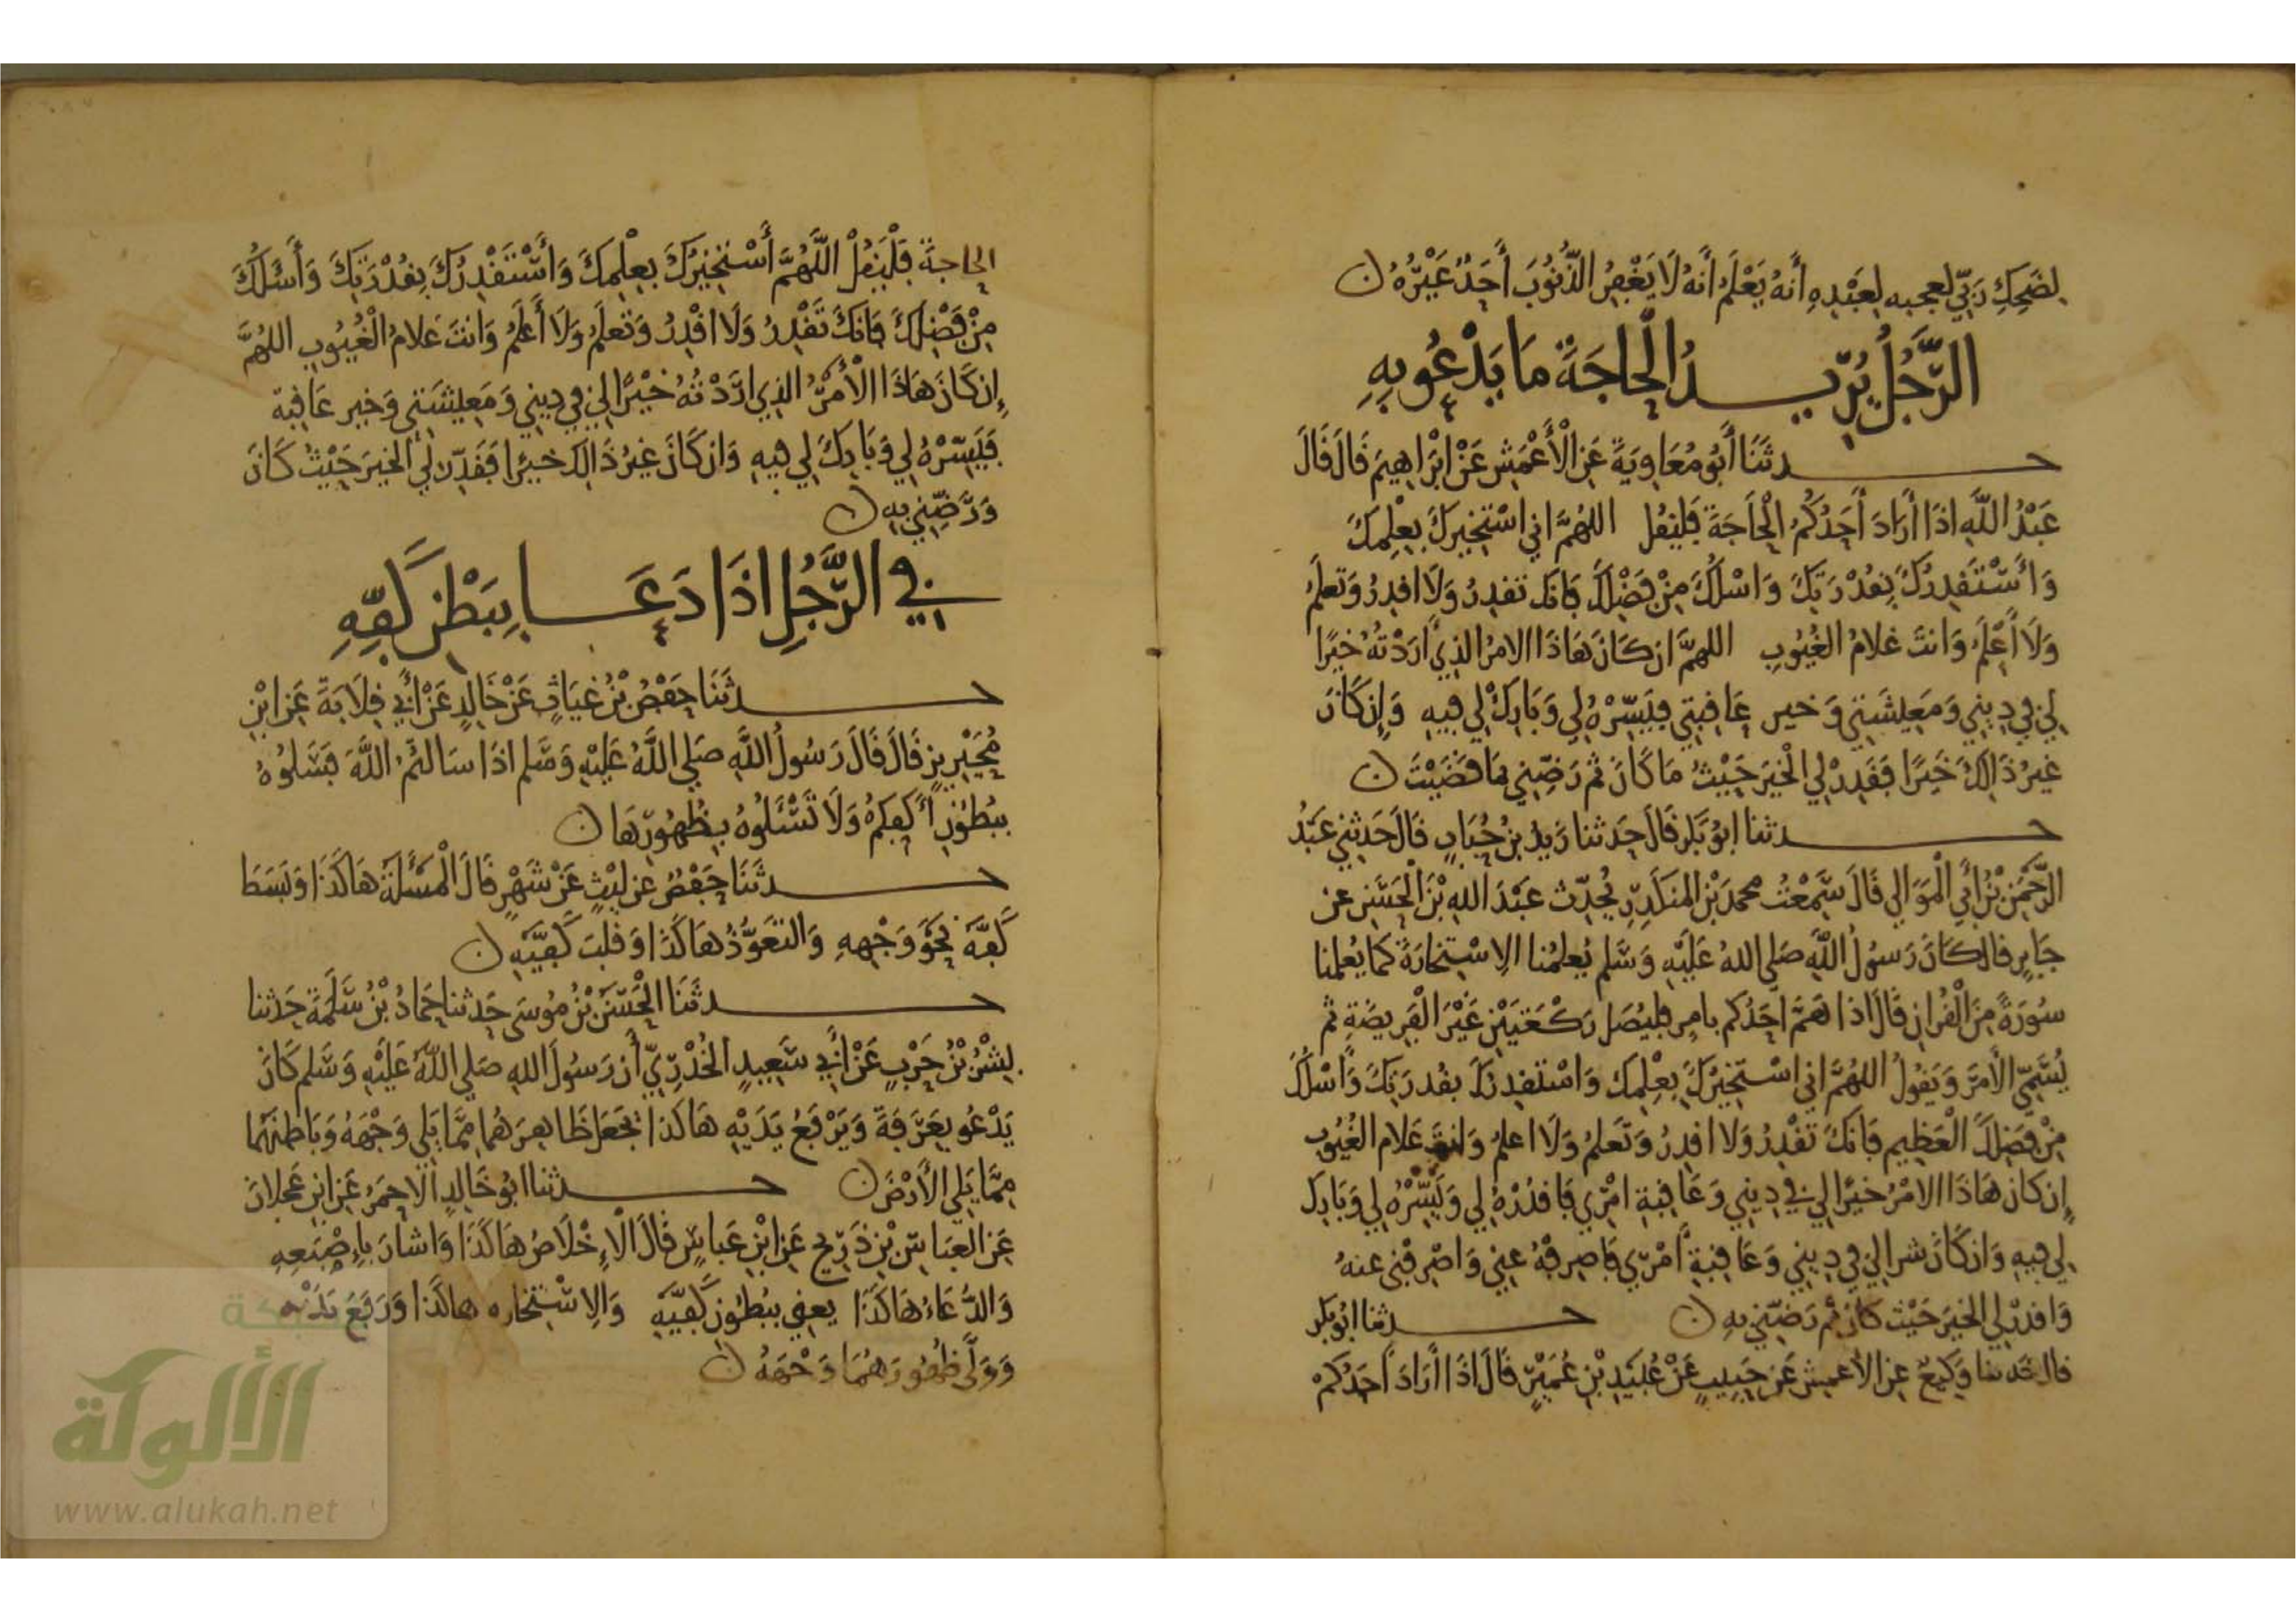 لضحك ربي لعجبه لعبده أنه يعلم أنه لا يغفر الذنوب أحد غيره ن
الرَّجُلُ يُرِيدُ الْحَاجَةَ مَا يَدْعُو بِهِ
حدثنا أبو معاوية عن الأعمش عن ابراهيم قال قال
عبد الله اذا أراد أحدكم الحاجة فليقل اللهم اني استخيرك بعلمك
وأستقدرك بقدرتك واسلك من فضلك فانك تقدر ولا اقدر وتعلم
ولا أعلم وانت علام الغيوب اللهم ان كان هاذا الامر الذي أردته خيرا
لي في ديني ومعيشتي وخير عافبتي فيسره لي وبارك لي فيه وإن كان
غير ذالك خيرا فقدر لي الخير حيث ما كان ثم رضني بما قضيت ن
حدثنا ابو بكر قال حدثنا زيد بن حباب قال حدثني عبد
الرحمن بن أبي الموالي قال سمعت محمد بن المنكدر يحدث عبد الله بن الحسن عن
جابر قال كان رسول الله صلى الله عليه وسلم يعلمنا الاستخارة كما يعلمنا
سورة من القران قال اذا هم أحدكم بامر فليصل ركعتين غير الفريضة ثم
يسمي الأمر ويقول اللهم اني استخيرك بعلمك واستقدرك بقدرتك وأسلك
من فضلك العظيم فانك تقدر ولا اقدر وتعلم ولا اعلم وانت علام الغيوب
إن كان هاذا الامر خيرا لي في ديني وعاقبة امري فاقدره لي ويسره لي وبارك
لي فيه وان كان شرا لي في ديني وعاقبة أمري فاصرفه عني واصرفني عنه
واقدر لي الخير حيث كان ثم رضني به ن حدثنا ابو بكر
قال حدثنا وكيع عن الأعمش عن حبيب عن عبيد بن عمير قال اذا أراد أحدكم
الحاجة فليقل اللهم أستخيرك بعلمك وأستقدرك بقدرتك وأسئلك
من فضلك فانك تقدر ولا اقدر وتعلم ولا أعلم وانت علام الغيوب اللهم
إن كان هاذا الأمر الذي اردته خيرا لي في ديني ومعيشتي وخير عاقبة
فيسره لي وبارك لي فيه وان كان غير ذالك خيرا فقدر لي الخير حيث كان
ورضني به ن
في الرَّجُلِ اذَا دَعَا بِبَطْنِ كَفِّهِ
حدثنا حفص بن غياث عن خالد عن أبي قلابة عن ابن
محيريز قال قال رسول الله صلى الله عليه وسلم اذا سالتم الله فسلوه
ببطون أكفكم ولا تسئلوه بظهورها ن
حدثنا حفص عن ليث عن شهر قال المسئلة هاكذا وبسط
كفه نحو وجهه والتعوذ هاكذا وقلب كفيه ن
حدثنا الحسن بن موسى حدثنا حماد بن سلمة حدثنا
بشر بن حرب عن أبي سعيد الخدري أن رسول الله صلى الله عليه وسلم كان
يدعو بعرفة ويرفع يديه هاكذا يجعل ظاهرهما مما يلي وجهه وباطنهما
مما يلي الأرض ن حدثنا ابو خالد الاحمر عن ابن عجلان
عن العباس بن ذريح عن ابن عباس قال الإخلاص هاكذا واشار بإصبعه
والدعاء هاكذا يعني ببطون كفيه والاستخاره هاكذا ورفع يديه
وولى ظهورهما وجهه ن
شبكة
الألوكة
www.alukah.net